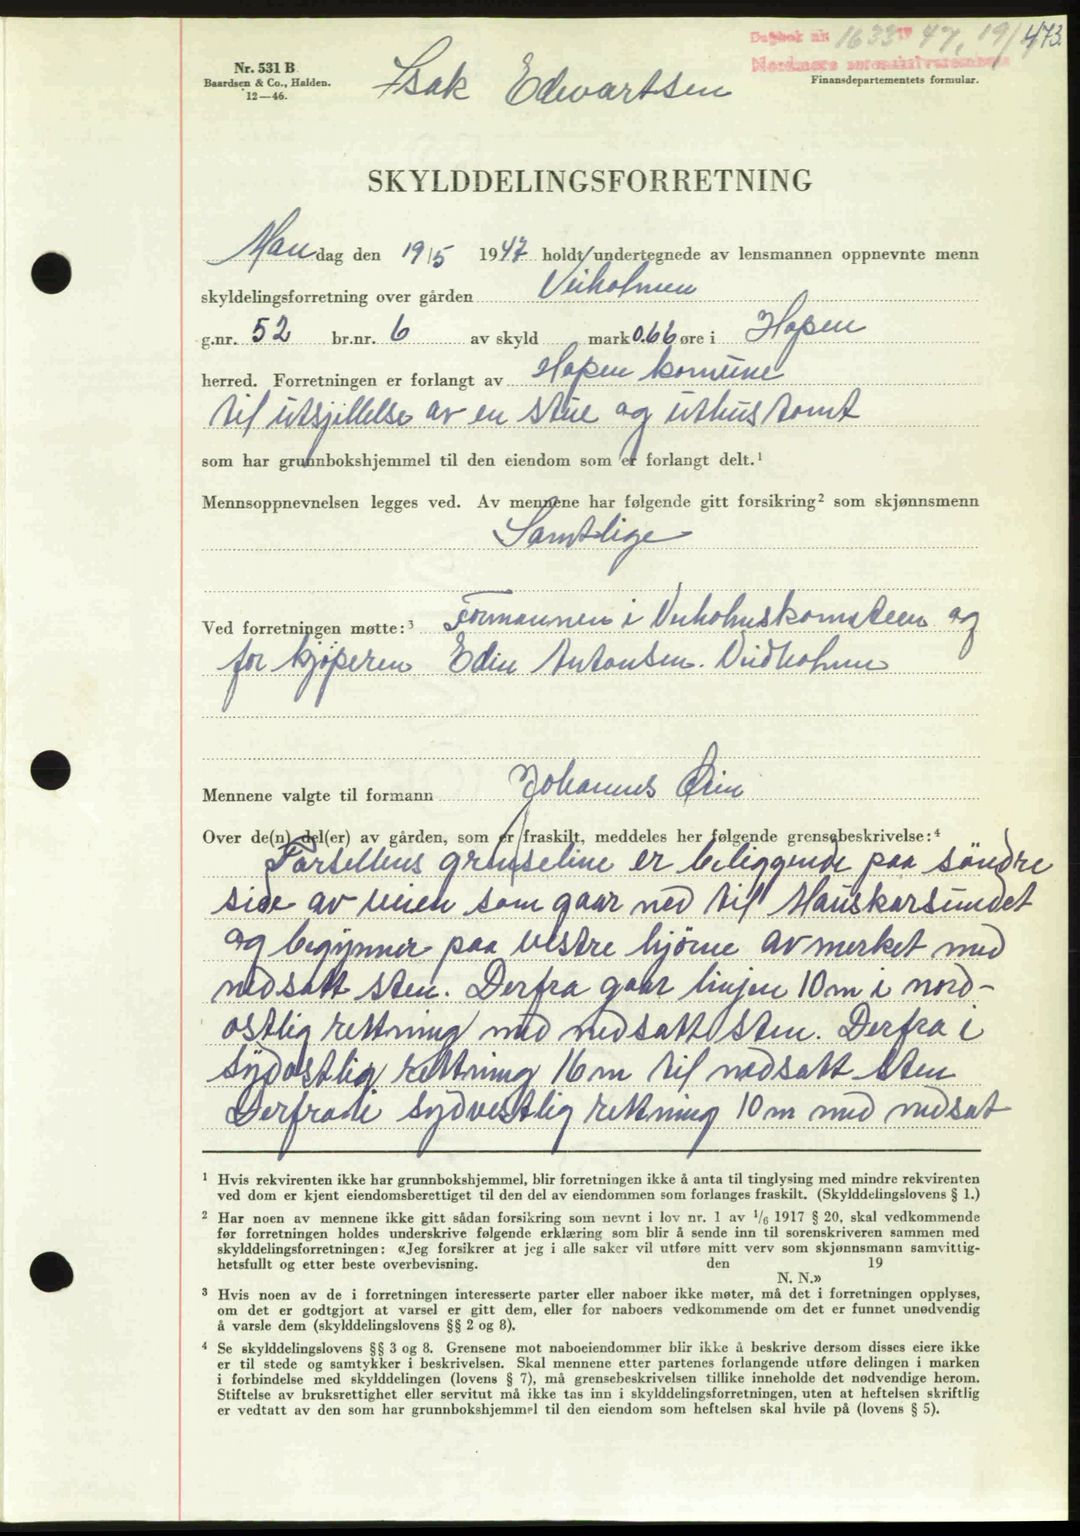 Dagbok nr. 1633 19 47, 19/
473.
Nordmøre sorenskriverembete
Nr. 531 B
Baardsen & Co., Halden.
12—46.
Isak Edwartsen
Finansdepartementets formular.
SKYLDDELINGSFORRETNING
Mandag den 19/5 1947 holdt undertegnede av lensmannen oppnevnte menn
skyldelingsforretning over gården Veiholmen
g.nr. 52 br.nr. 6 av skyld mark 0.66 øre i Hopen
herred. Forretningen er forlangt av Hopen komune
til utsjillelse av en stue og uthustomt
som har grunnbokshjemmel til den eiendom som er forlangt delt.¹
Mennsoppnevnelsen legges ved. Av mennene har følgende gitt forsikring² som skjønnsmenn
Samtlige
Ved forretningen møtte:³ Formannen i Veiholmskomiteen og
for kjøperen Edin Antonsen. Veidholmen
Mennene valgte til formann Johannes Ørin
Over de(n) del(er) av gården, som er fraskilt, meddeles her følgende grensebeskrivelse:⁴
Parsellens grenseline er beliggende paa søndre
side av veien som gaar ned til Hauskarsundet
og begynner paa vestre hjørne avmerket med
nedsatt sten. Derfra gaar linjen 10 m i nord-
ostlig rettning med nedsatt sten. Derfra i
sydostlig rettning 16 m til nedsatt sten
Derfra i sydvestlig rettning 10 m med nedsat
¹ Hvis rekvirenten ikke har grunnbokshjemmel, blir forretningen ikke å anta til tinglysing med mindre rekvirenten
ved dom er kjent eiendomsberettiget til den del av eiendommen som forlanges fraskilt. (Skylddelingslovens § 1.)
² Har noen av mennene ikke gitt sådan forsikring som nevnt i lov nr. 1 av 1/6 1917 § 20, skal vedkommende
før forretningen holdes underskrive følgende erklæring som blir å sende inn til sorenskriveren sammen med
skylddelingsforretningen: «Jeg forsikrer at jeg i alle saker vil utføre mitt verv som skjønnsmann samvittig-
hetsfullt og etter beste overbevisning. den 19
N. N.»
³ Hvis noen av de i forretningen interesserte parter eller naboer ikke møter, må det i forretningen opplyses,
om det er godtgjort at varsel er gitt dem, eller for naboers vedkommende om det er funnet unødvendig
å varsle dem (skylddelingslovens §§ 2 og 8).
⁴ Se skylddelingslovens §§ 3 og 8. Grensene mot naboeiendommer blir ikke å beskrive dersom disses eiere ikke
er til stede og samtykker i beskrivelsen. Skal mennene etter partenes forlangende utføre delingen i marken
i forbindelse med skylddelingen (lovens § 7), må grensebeskrivelsen tillike inneholde det nødvendige herom.
Stiftelse av bruksrettighet eller servitut må ikke tas inn i skylddelingsforretningen, uten at heftelsen skriftlig
er vedtatt av den som har grunnbokshjemmel til den eiendom som heftelsen skal hvile på (lovens § 5).